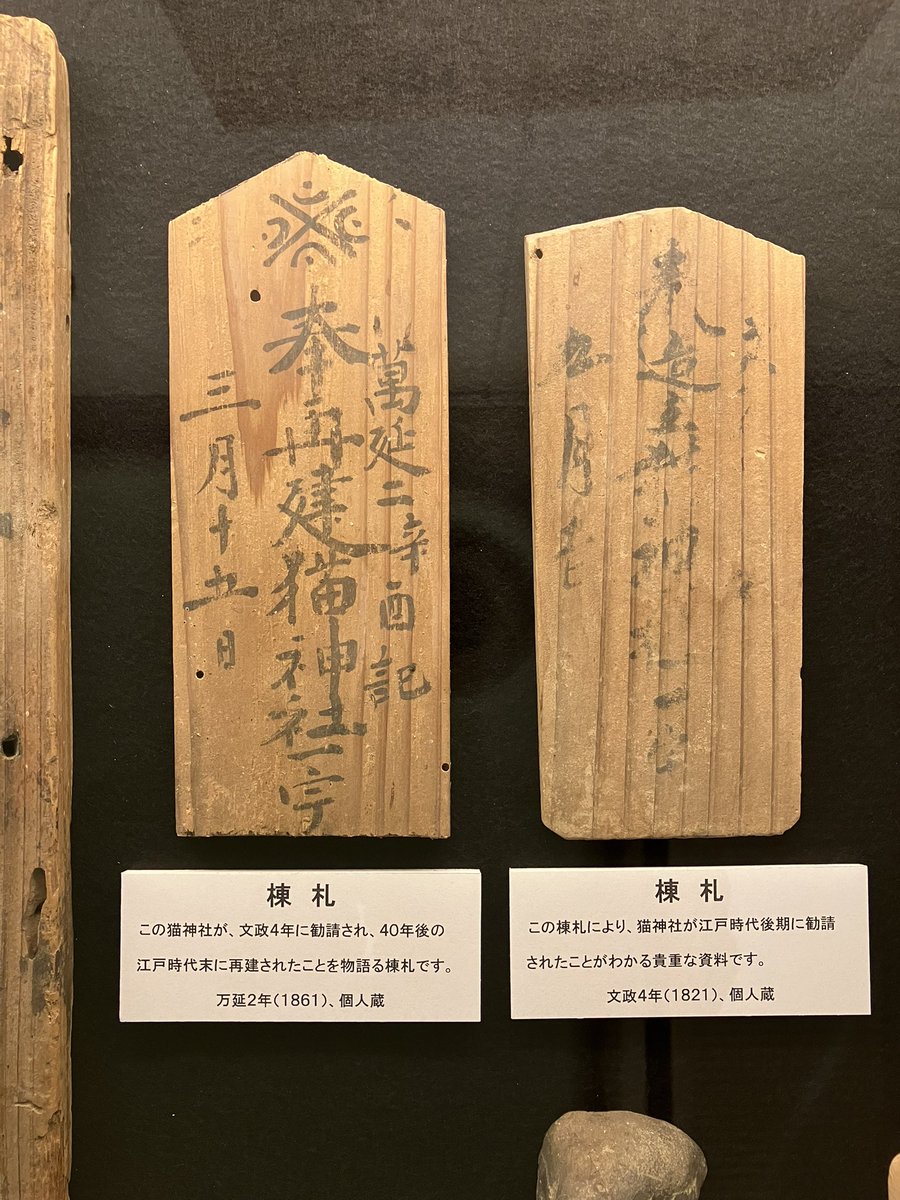 萬延二辛酉記
奉再建猫神社一宇
三月十五日
奉造立猫神社一宇
棟札
この猫神社が、文政4年に勧請され、40年後の
江戸時代末に再建されたことを物語る棟札です。
万延2年(1861)、個人蔵
棟札
この棟札により、猫神社が江戸時代後期に勧請
されたことがわかる貴重な資料です。
文政4年(1821)、個人蔵